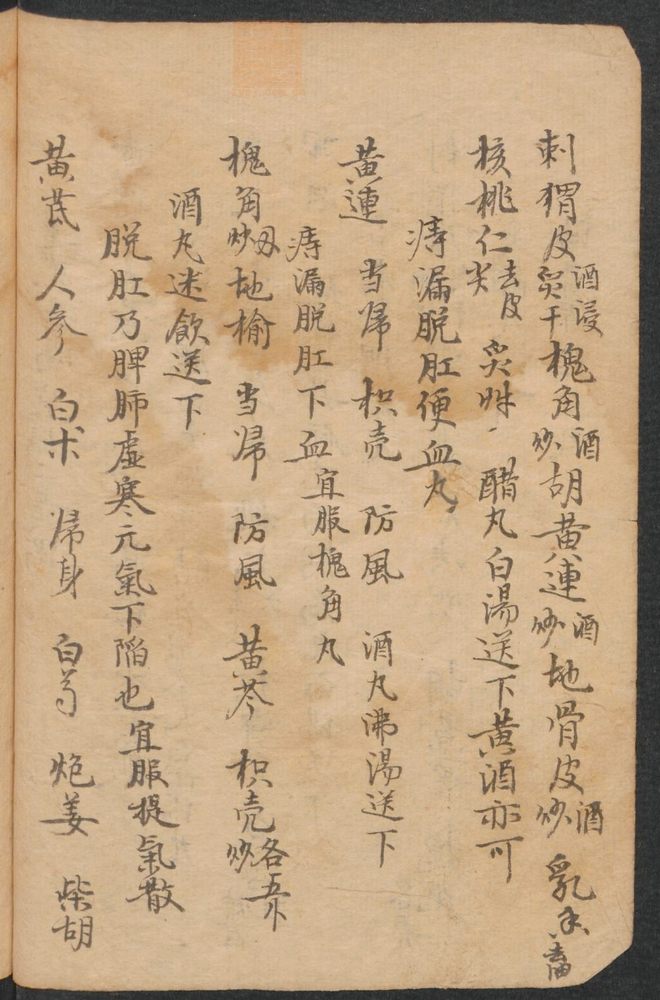 刺猬皮酒浸炙干槐角酒炒胡黄連酒炒地骨皮酒炒乳香
核桃仁去皮尖炙 醋丸白湯送下黄酒亦可
痔漏脱肛便血丸
黄連 当帰 枳壳 防風 酒丸沸湯送下
痔漏脱肛下血宜服槐角丸
槐角炒 地榆 当帰 防風 黄芩 枳壳炒各
酒丸迷飲送下
脱肛乃脾肺虚寒元氣下陥也宜服提氣散
黄芪 人参 白术 帰身 白芍 炮姜 柴胡